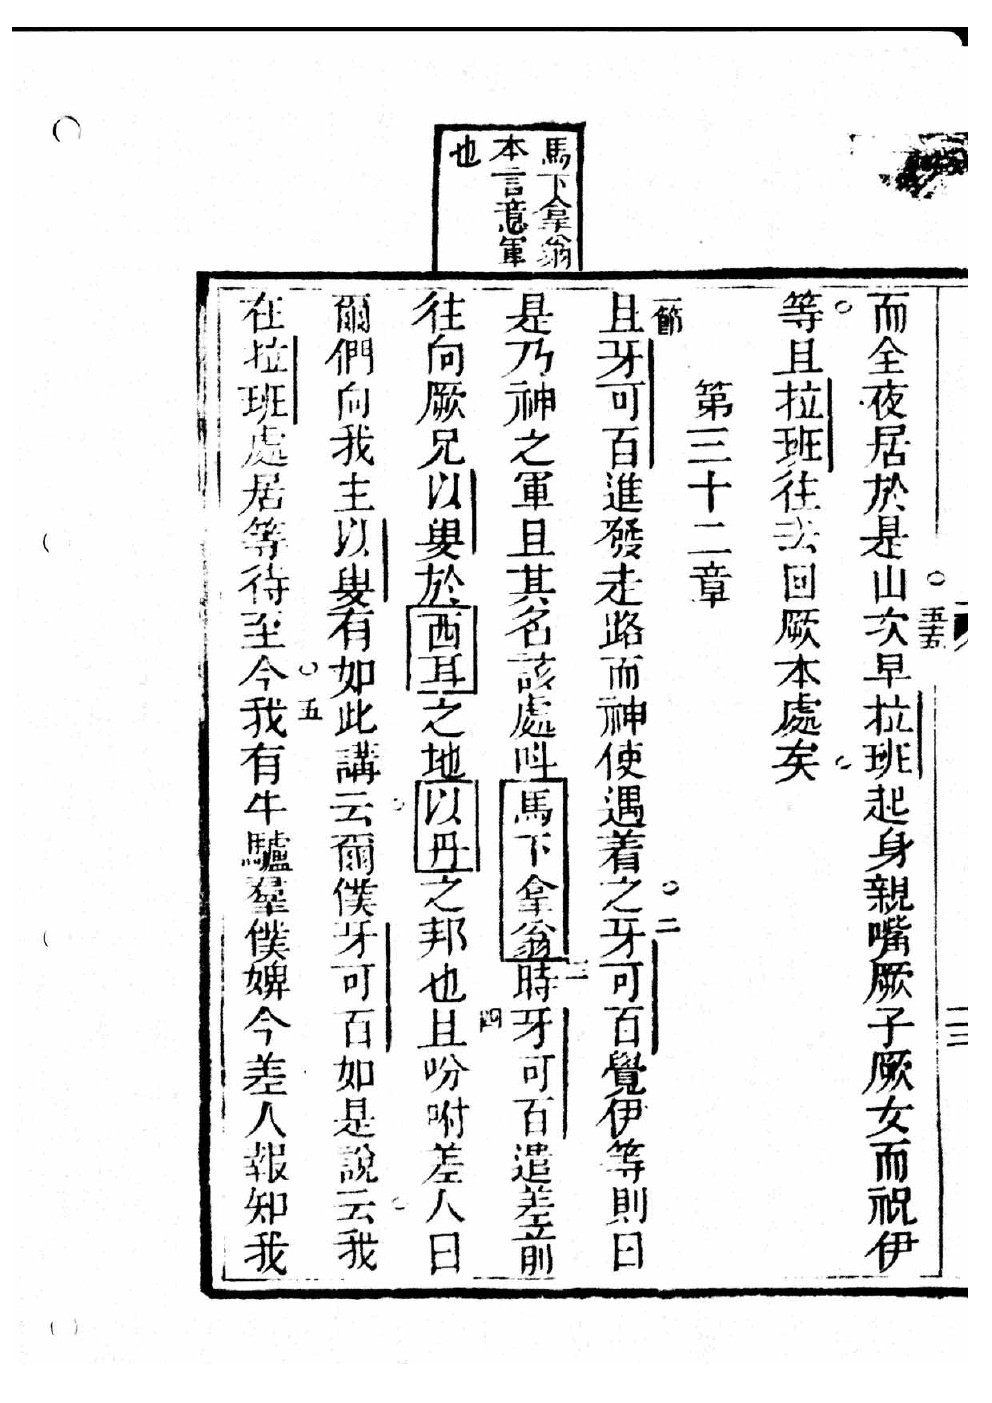 馬下拿翁
本言意軍
也
而全夜居於是山次早拉班起身親嘴厥子厥女而祝伊
五五
等且拉班往去回厥本處矣
第三十二章
一節
且牙可百進發走路而神使遇着之牙可百覺伊等則曰
二
是乃神之軍且其名該處呌馬下拿翁時牙可百遣差前
三
往向厥兄以叟於西耳之地以丹之邦也且吩咐差人曰
四
爾們向我主以叟有如此講云爾僕牙可百如是說云我
在拉班處居等待至今我有牛驢羣僕婢今差人報知我
五